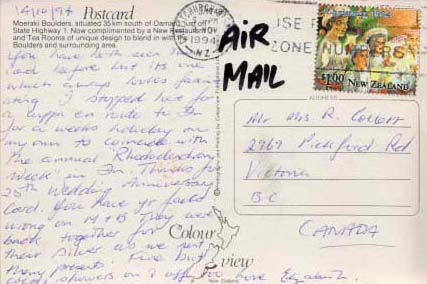 14/10/94
Postcard
Moeraki Boulders, situated 35km south of Oamaru, just off
State Highway 1. Now complimented by a New Restaurant
and Tea Rooms of unique design to blend in with its
Boulders and surrounding area.
You have both seen
card before but its one
which always looks fascin
ating I stopped here for
a cuppa en route to Dn
for a weeks holiday on
my own to coincide with
the annual Rhododendron
Week in Dn. Thanks for
25th Wedding Anniversary
Card. You have yr facts
wrong on M+B They were
back together for
their Silver as we sent
them presents. Fine but
showers on & off too Love Elizabeth
AIR
MAIL
1994
NZ
USE
ZONE NUMBERS
$1.00 NEW ZEALAND
ADDRESS
Mr Mrs R. Collett
2969 Pickford Rd
Victoria
B.C
CANADA
Colour
view
New Zealand